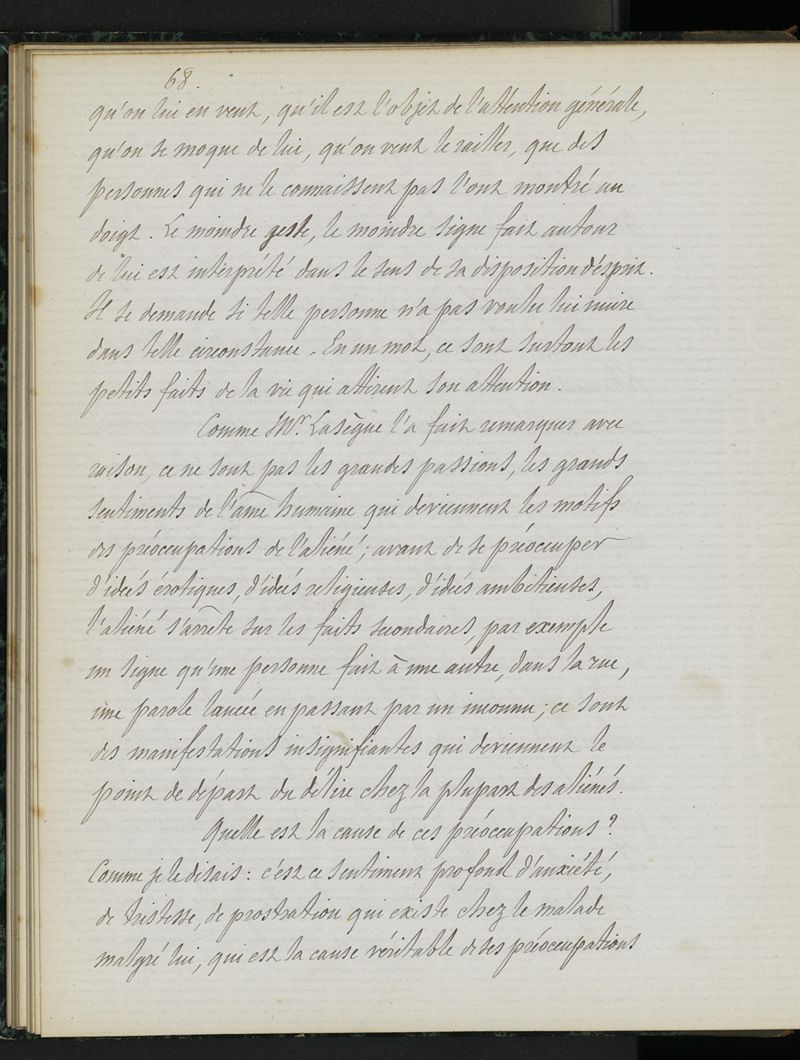 68.
qu'on lui en veut, qu'il est l'objet de l'attention générale,
qu'on se moque de lui, qu'on veut le railler, que des
personnes qui ne le connaissent pas l'ont montré au
doigt. Le moindre geste, le moindre signe fait autour
de lui est interprété dans le sens de sa disposition d'esprit.
Il se demande si telle personne n'a pas voulu lui nuire
dans telle circonstance. En un mot, ce sont surtout les
petits faits de la vie qui attirent son attention.
Comme Mr. Lasègue l'a fait remarquer avec
raison, ce ne sont pas les grandes passions, les grands
sentiments de l'âme humaine qui deviennent les motifs
des préoccupations de l'aliéné; avant de se préoccuper
d'idées érotiques, d'idées religieuses, d'idées ambitieuses,
l'aliéné s'arrête sur les faits secondaires, par exemple
un signe qu'une personne fait à une autre, dans la rue,
une parole lancée en passant par un inconnu; ce sont
des manifestations insignifiantes qui deviennent le
point de départ du délire chez la plupart des aliénés.
Quelle est la cause de ces préoccupations?
Comme je le disais: c'est ce sentiment profond d'anxiété,
de tristesse, de prostration qui existe chez le malade
malgré lui, qui est la cause véritable de ses préoccupations